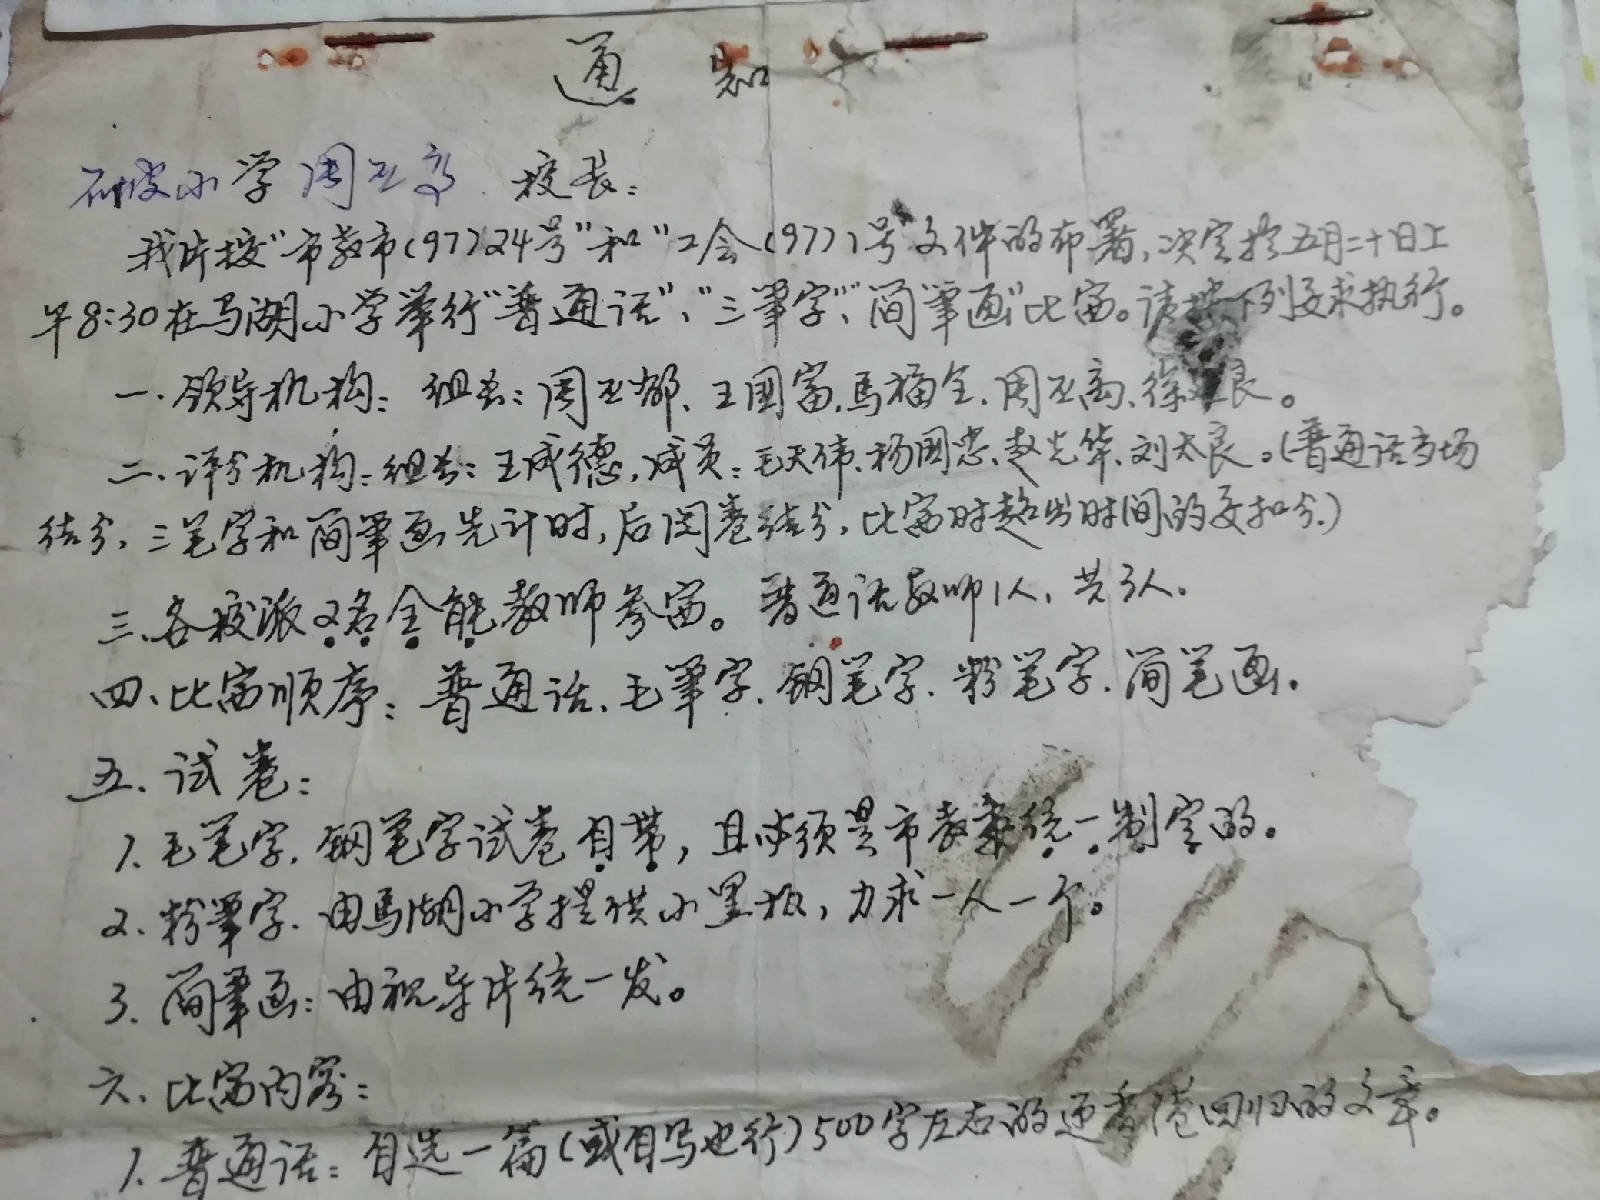 通知
石皮小学周丕高 校长：
我片按"市教市(97)24号"和"工会(97)1号"文件的布署，决定于五月二十日上
午8:30在马湖小学举行"普通话"、"三笔字"、"简笔画"比赛。请按下列要求执行。
一、领导机构：组长：周丕都、王国富、马福全、周丕高、徐良。
二、评分机构：组长：王成德，成员：毛天伟、杨国忠、赵先华、刘太良。（普通话当场
结分，三笔字和简笔画先计时，后阅卷结分，比赛时超出时间的要扣分。）
三、各校派2名全能教师参赛。普通话教师1人，共3人。
四、比赛顺序：普通话、毛笔字、钢笔字、粉笔字、简笔画。
五、试卷：
1、毛笔字、钢笔字试卷自带，且必须是市教委统一制定的。
2、粉笔字、由马湖小学提供小黑板，力求一人一个。
3、简笔画：由视导片统一发。
六、比赛内容：
1、普通话：自选一篇（或自写也行）500字左右的迎香港回归的文章。